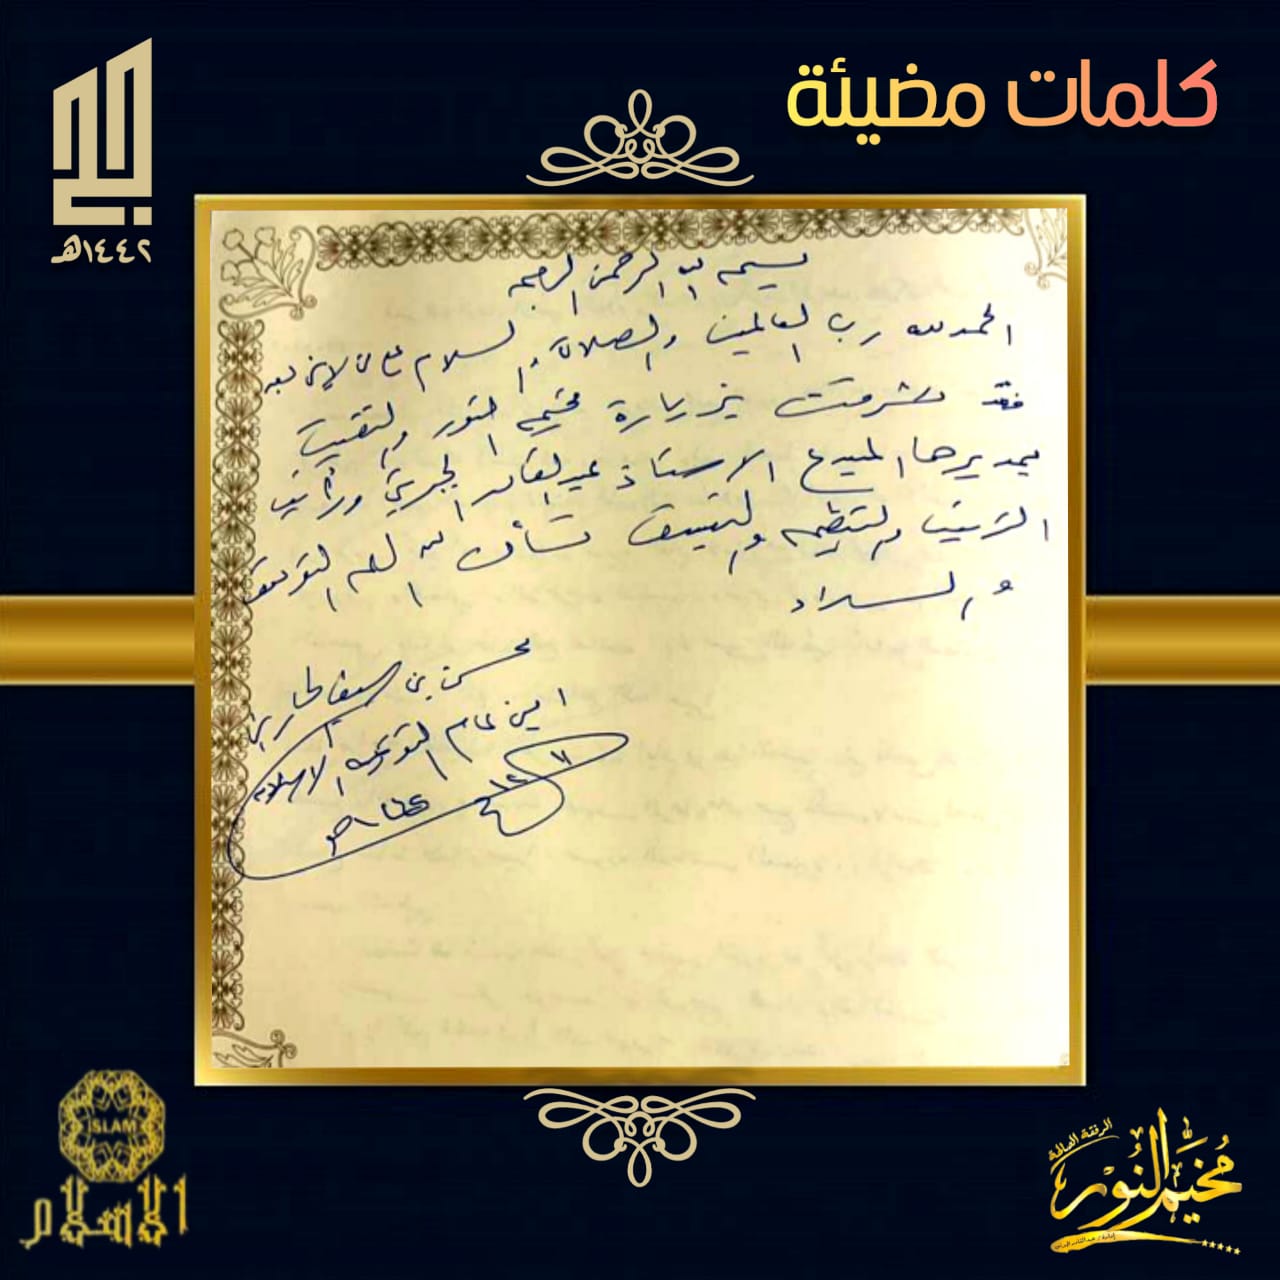 كلمات مضيئة
١٤٤٢هـ
بسم الله الرحمن الرحيم
الحمد لله رب العالمين والصلاة والسلام على
فقد تشرفت بزيارة مخيم النور والتقيت
بمديرها المبدع الاستاذ عبدالقادر
الترتيب والتنظيم والتنسيق نسأل الله لهم التوفيق
والسداد
محسن بن
امين عام التوعية الاسلامية
ISLAM
الاسلام
الرفقة الصالحة
مخيم النور